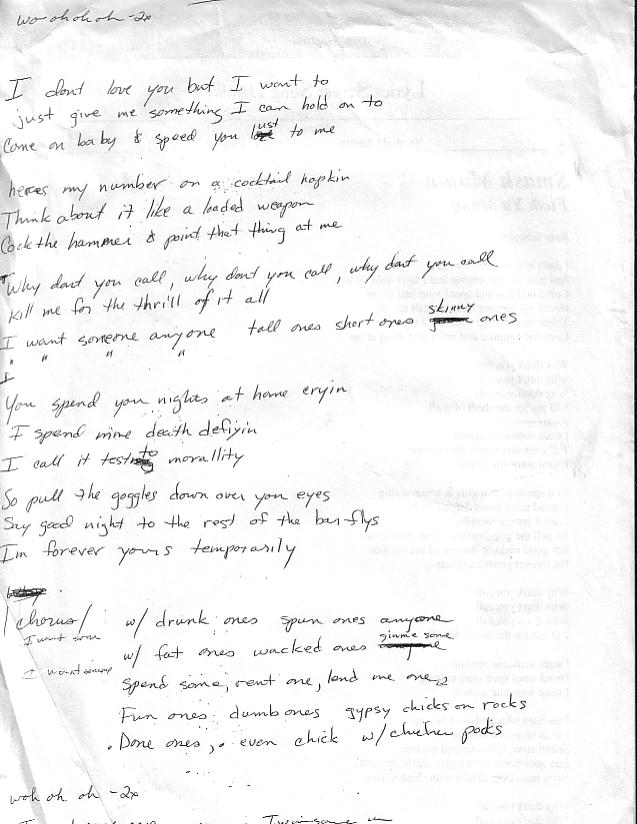 wo oh oh oh -2x
I dont love you but I want to
just give me something I can hold on to
Come on baby & speed you lust to me
heres my number on a cocktail hapkin
Think about it like a loaded weapon
Cock the hammer & point that thing at me
Why dont you call, why dont you call, why dont you call
kill me for the thrill of it all
I want someone anyone tall ones short ones skinny ones
" " " "
I
You spend you nights at home cryin
I spend mine death defiyin
I call it testing morallity
So pull the goggles down over you eyes
Say good night to the rest of the bar flys
Im forever yours temporarily
/chorus/ w/ drunk ones spun ones anyone
I want some
w/ fat ones wacked ones gimme some
I want someone
Spend some, rent one, lend me one
Fun ones dumb ones gypsy chicks on rocks
Done ones, even chick w/ chicken pocks
woh oh oh -2x